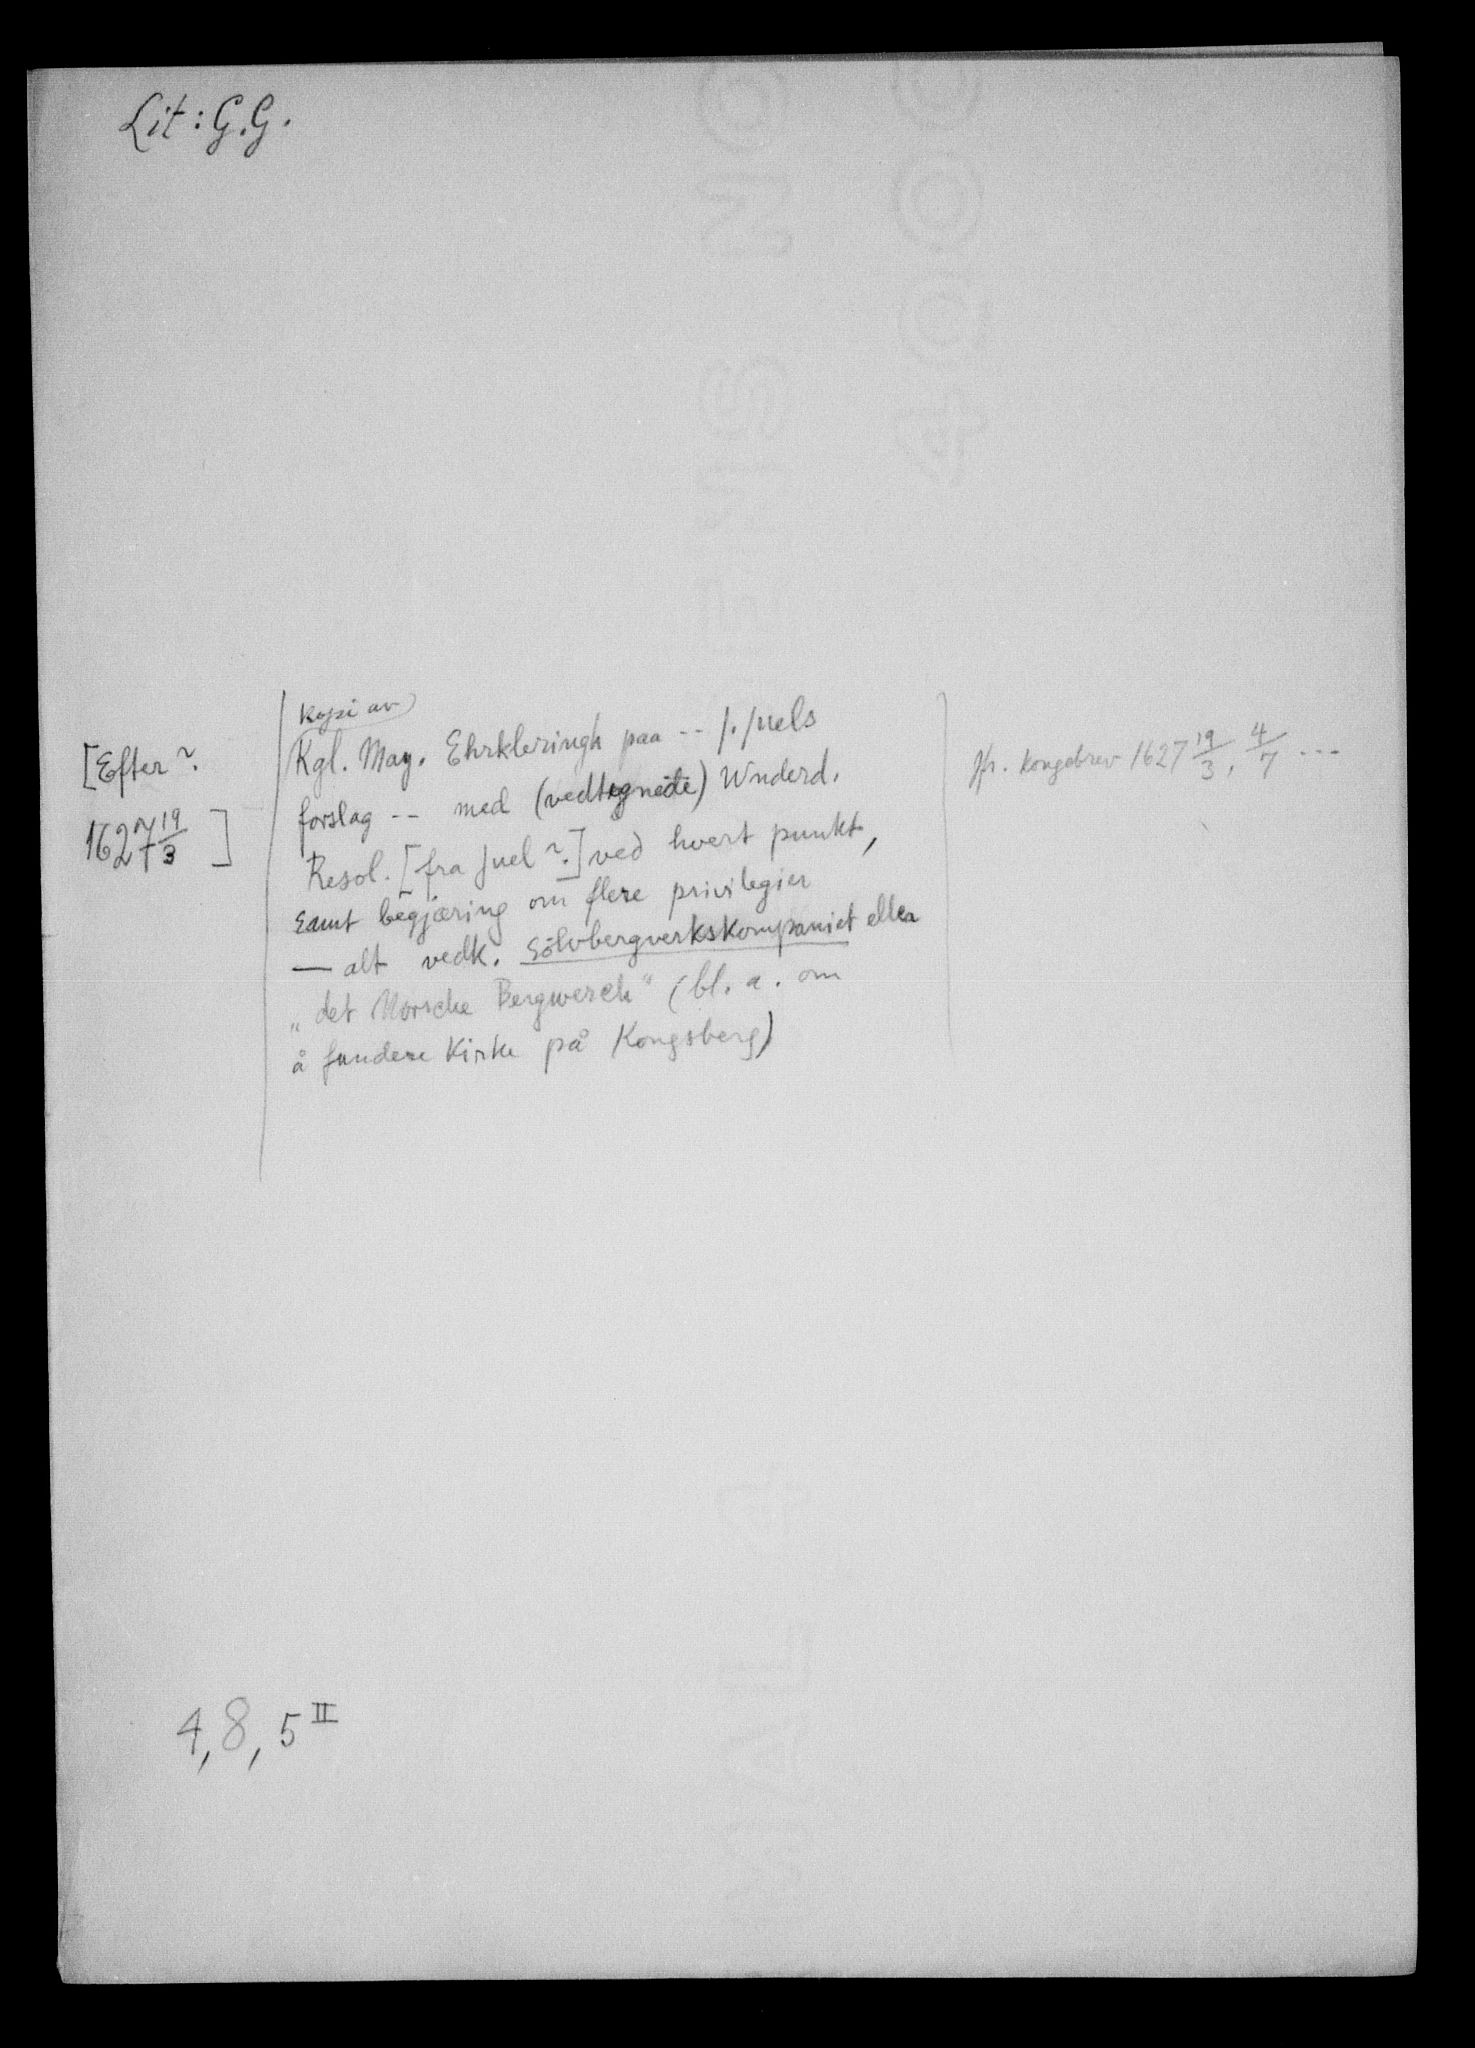 Lit: G.G.
[Efter?
1627 19/3 ]
Kopi av
Kgl. May. Ehrkleringh paa -- J. Juels
forslag -- med (vedtegnede) Wnderd.
Resol. [fra Juel?] ved hvert punkt,
samt begjæring om flere privilegier
— alt vedk. Sölvbergverkskompaniet eller
„det Norsche Bergwerch" (bl. a. om
å fundere Kirke på Kongsberg)
Jfr. kongebrev 1627 19/3, 4/7 ---
4, 8, 5 II